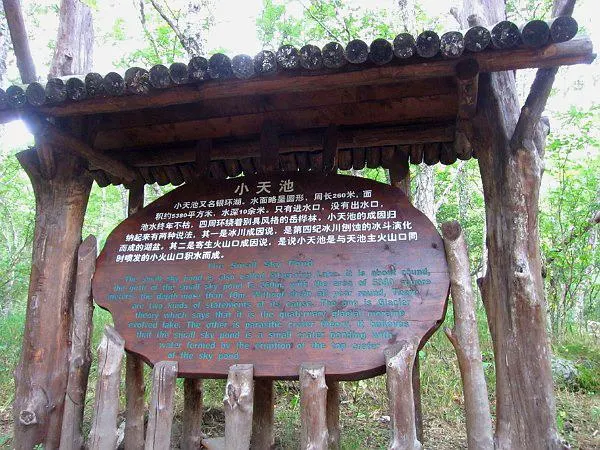 小天池
小天池又名银环湖,水面略呈圆形,周长260米,面
积约5380平方米,水深10余米,只有进水口,没有出水口,
池水终年不枯,四周环绕着别具风格的岳桦林。小天池的成因归
纳起来有两种说法,其一是冰川成因说,是第四纪冰川刨蚀的冰斗演化
而成的湖盆,其二是寄生火山口成因说,是说小天池是与天池主火山口同
时喷发的小火山口积水而成。
The Small Sky Pond
The small sky pond is also called Silvering Lake. It is about round,
the girth of the small sky pond is 260m, with the area of 5380 square
meters, the depth more than 10m. Without drain all year round, There
are two kinds of statements of its cause. The one is Glacier
theory which says that it is the quaternary glacial moraine
evolved lake. The other is parasitic crater theory. It believes
that the small sky pond is a small crater ponding with
water formed by the eruption of the top crater
of the sky pond.